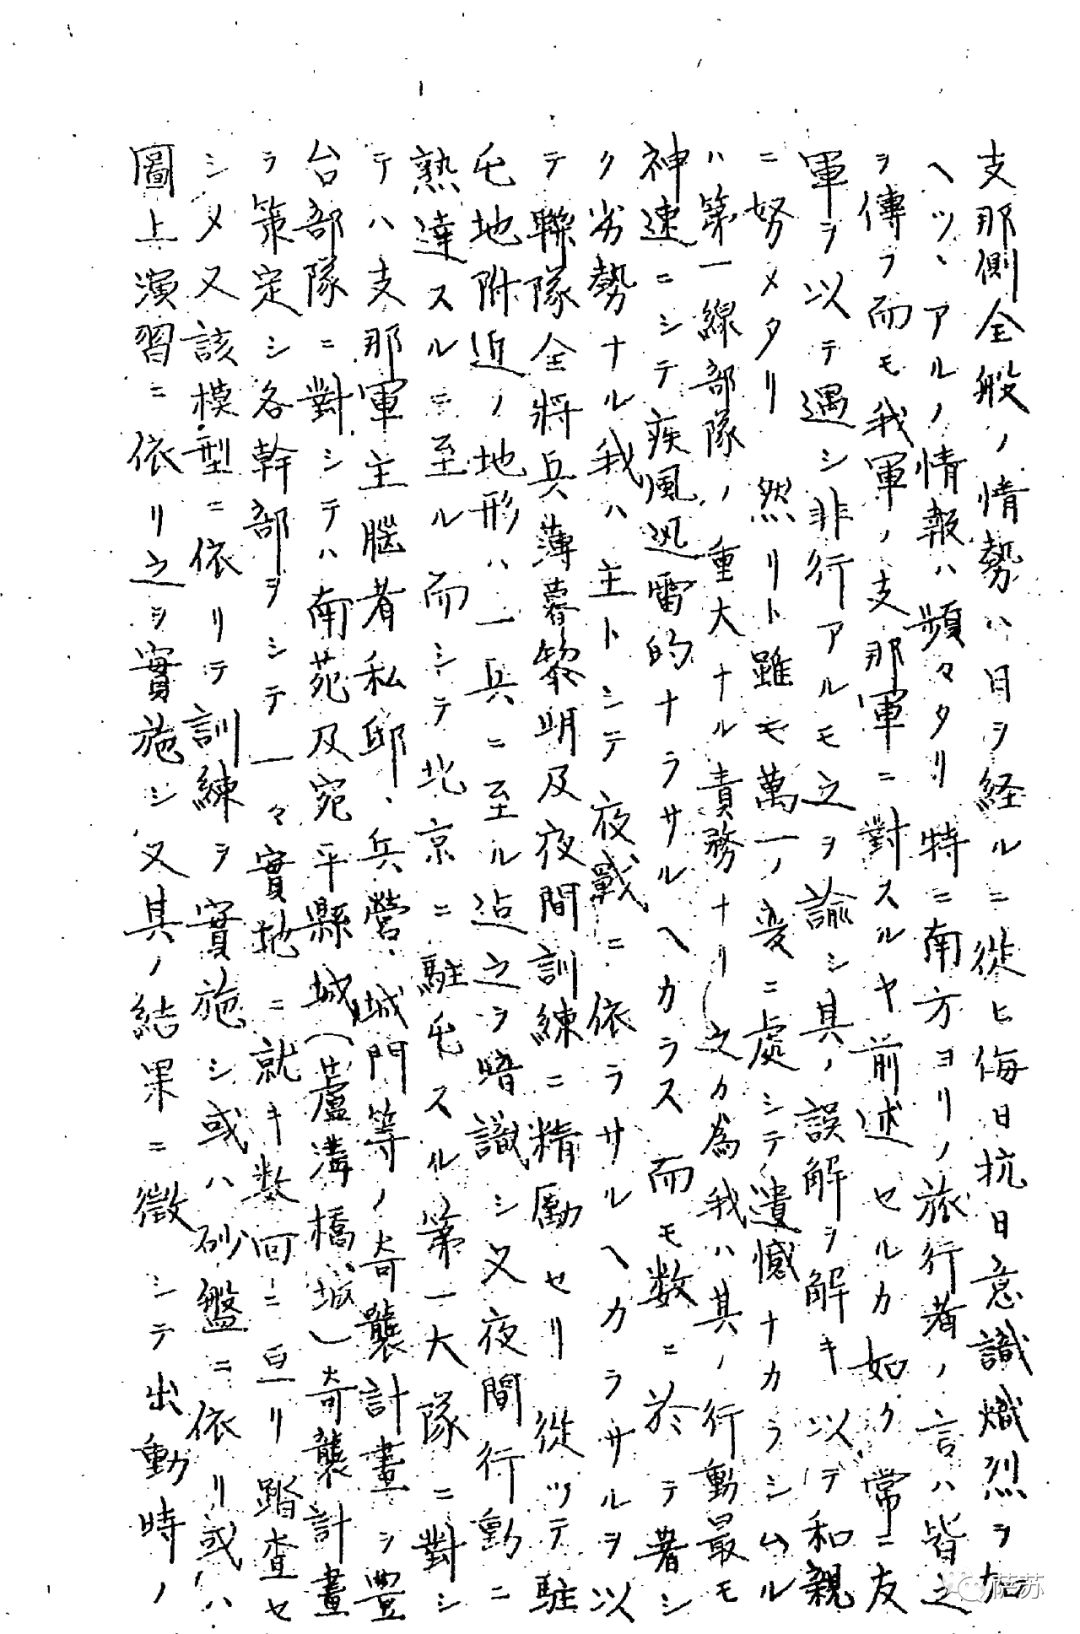 支那側全般ノ情勢ハ日ヲ経ルニ従ヒ侮日抗日意識熾烈ヲ加
ヘツヽアルノ情報ハ頻々タリ特ニ南方ヨリノ旅行者ノ言ハ皆之
ヲ傳フ而モ我軍ノ支那軍ニ對スルヤ前述セルカ如ク常ニ友
軍ヲ以テ遇シ非行アルモ之ヲ諭シ其ノ誤解ヲ解キ以テ和親
ニ努メタリ 然リト雖モ萬一ノ変ニ處シテ遺憾ナカラシムル
ハ第一線部隊ノ重大ナル責務ナリ之カ為我ハ其ノ行動最モ
神速ニシテ疾風迅雷的ナラサルヘカラス而モ数ニ於テ著シ
ク劣勢ナル我ハ主トシテ夜戦ニ依ラサルヘカラサルヲ以
テ聯隊全將兵薄暮黎明及夜間訓練ニ精励セリ従ツテ駐
屯地附近ノ地形ハ一兵ニ至ル迠之ヲ暗識シ又夜間行動ニ
熟達スルニ至ル而シテ北京ニ駐屯スル第一大隊ニ對シ
テハ支那軍主腦者私邸、兵營、城門等ノ奇襲計畫ヲ豐
台部隊ニ對シテハ南苑及宛平縣城(蘆溝橋城)奇襲計畫
ヲ策定シ各幹部ヲシテ一々實地ニ就キ数回ニ亘リ踏査セ
シメ又該模型ニ依リテ訓練ヲ實施シ或ハ砂盤ニ依リ或ハ
圖上演習ニ依リ之ヲ實施シ又其ノ結果ニ徴シテ出動時ノ
萨苏